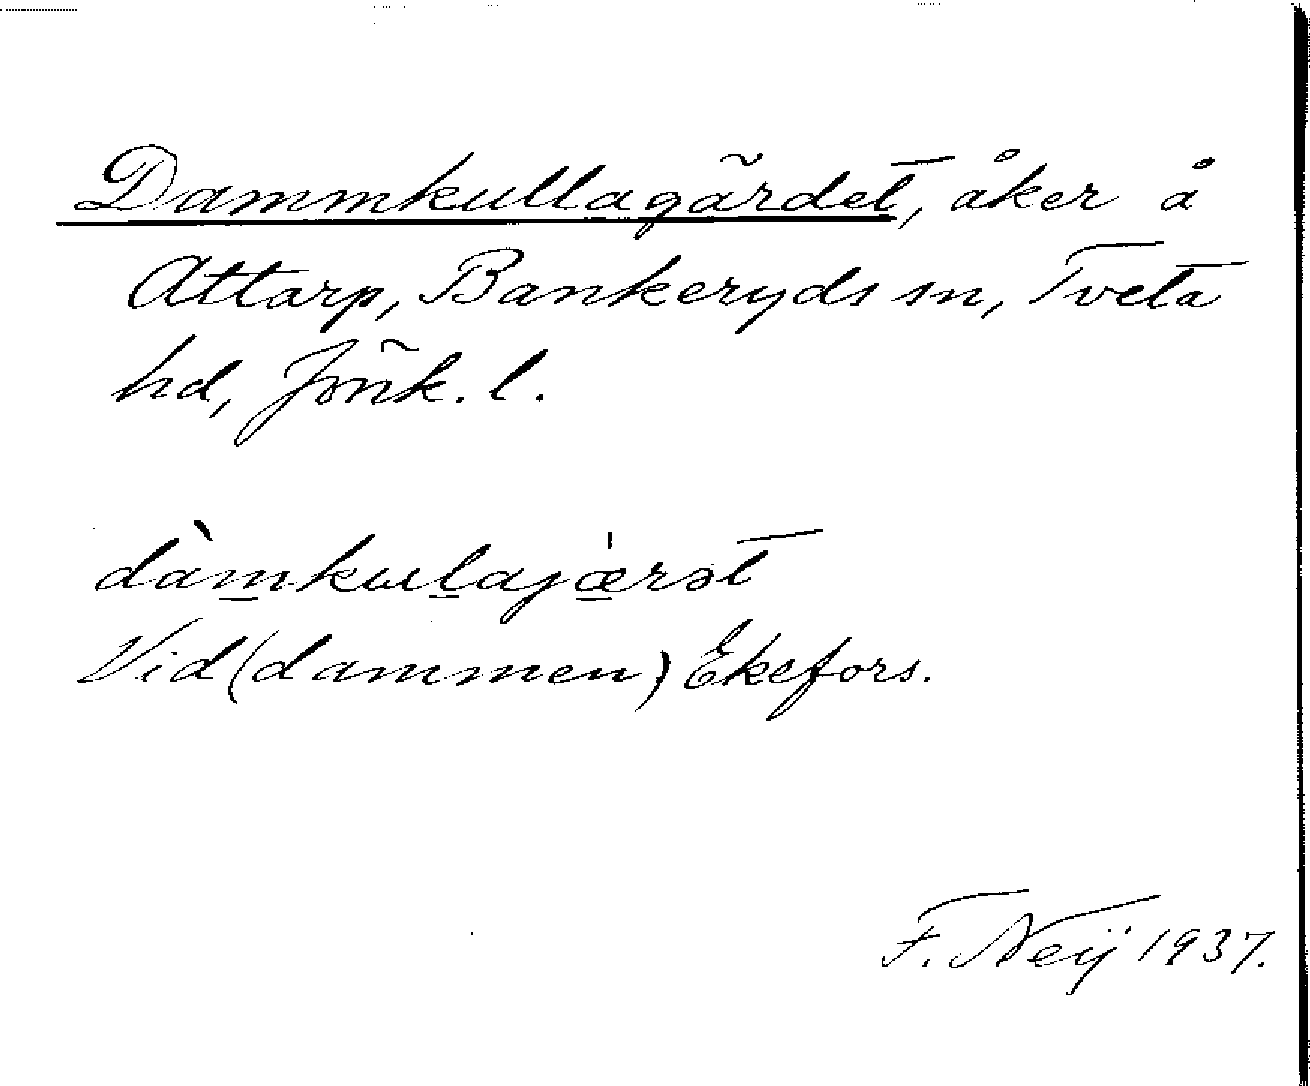 Dammkullagärdet, åker å
Attarp, Bankeryds sn, Tveta
hd, Jönk. l.
dàmkɯlajærət
Vid (dammen) Ekefors.
F. Neij 1937.